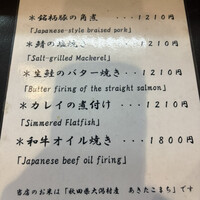 ＊銘柄豚の角煮・・・1210円
「Japanese-style braised pork」
＊鯖の塩焼き・・・・1210円
「Salt-grilled Mackerel」
＊生鮭のバター焼き・・1210円
「Butter firing of the straight salmon」
＊カレイの煮付け・・・1210円
「Simmered Flatfish」
＊和牛オイル焼き・・・1800円
「Japanese beef oil firing」
当店のお米は「秋田県大潟村産 あきたこまち」です